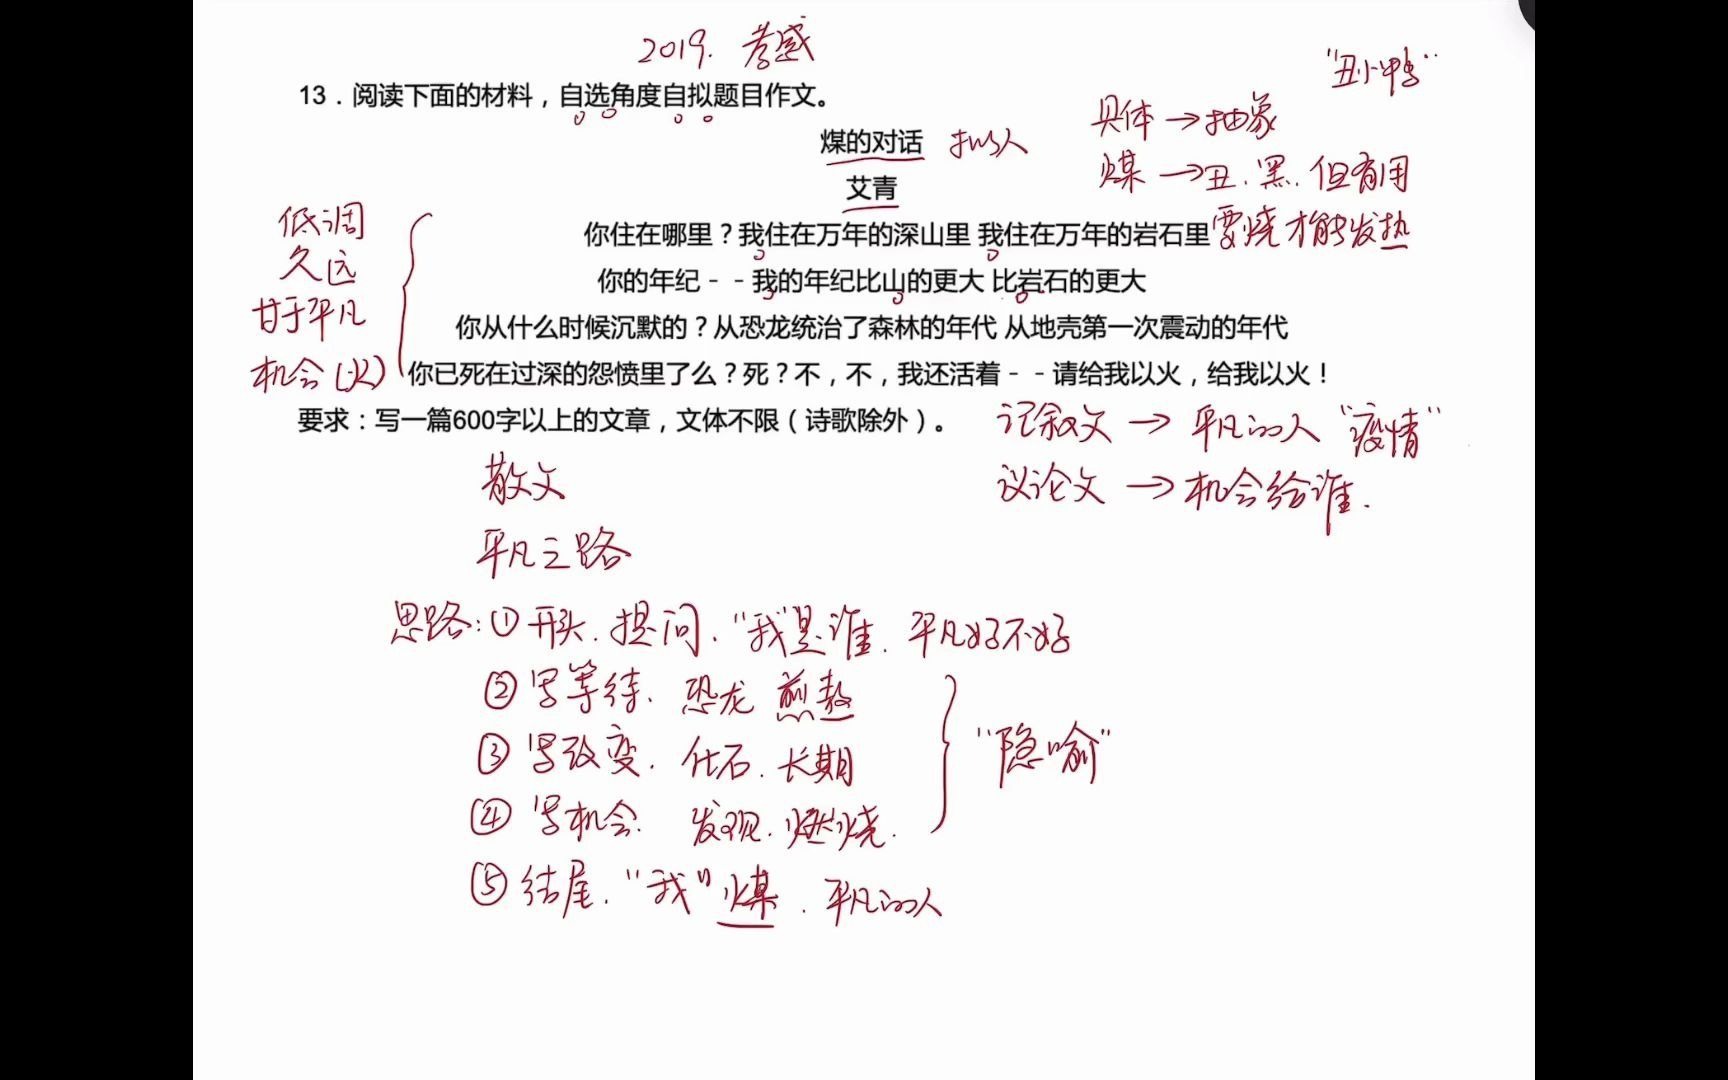 2019. 孝感
"丑小鸭"
13．阅读下面的材料，自选角度自拟题目作文。
具体→抽象
煤的对话 拟人
煤→丑.黑.但有用
艾青
低调
你住在哪里？我住在万年的深山里 我住在万年的岩石里
要烧才能发热
久远
你的年纪－－我的年纪比山的更大 比岩石的更大
甘于平凡
你从什么时候沉默的？从恐龙统治了森林的年代 从地壳第一次震动的年代
机会(火)
你已死在过深的怨愤里了么？死？不，不，我还活着－－请给我以火，给我以火！
要求：写一篇600字以上的文章，文体不限（诗歌除外）。
记叙文→平凡的人"疫情"
散文
议论文→机会给谁.
平凡之路
思路:①开头.提问."我"是谁.平凡好不好
②写等待.恐龙 煎熬
③写改变.化石.长期
"隐喻"
④写机会.发现.燃烧.
⑤结尾."我"煤.平凡的人